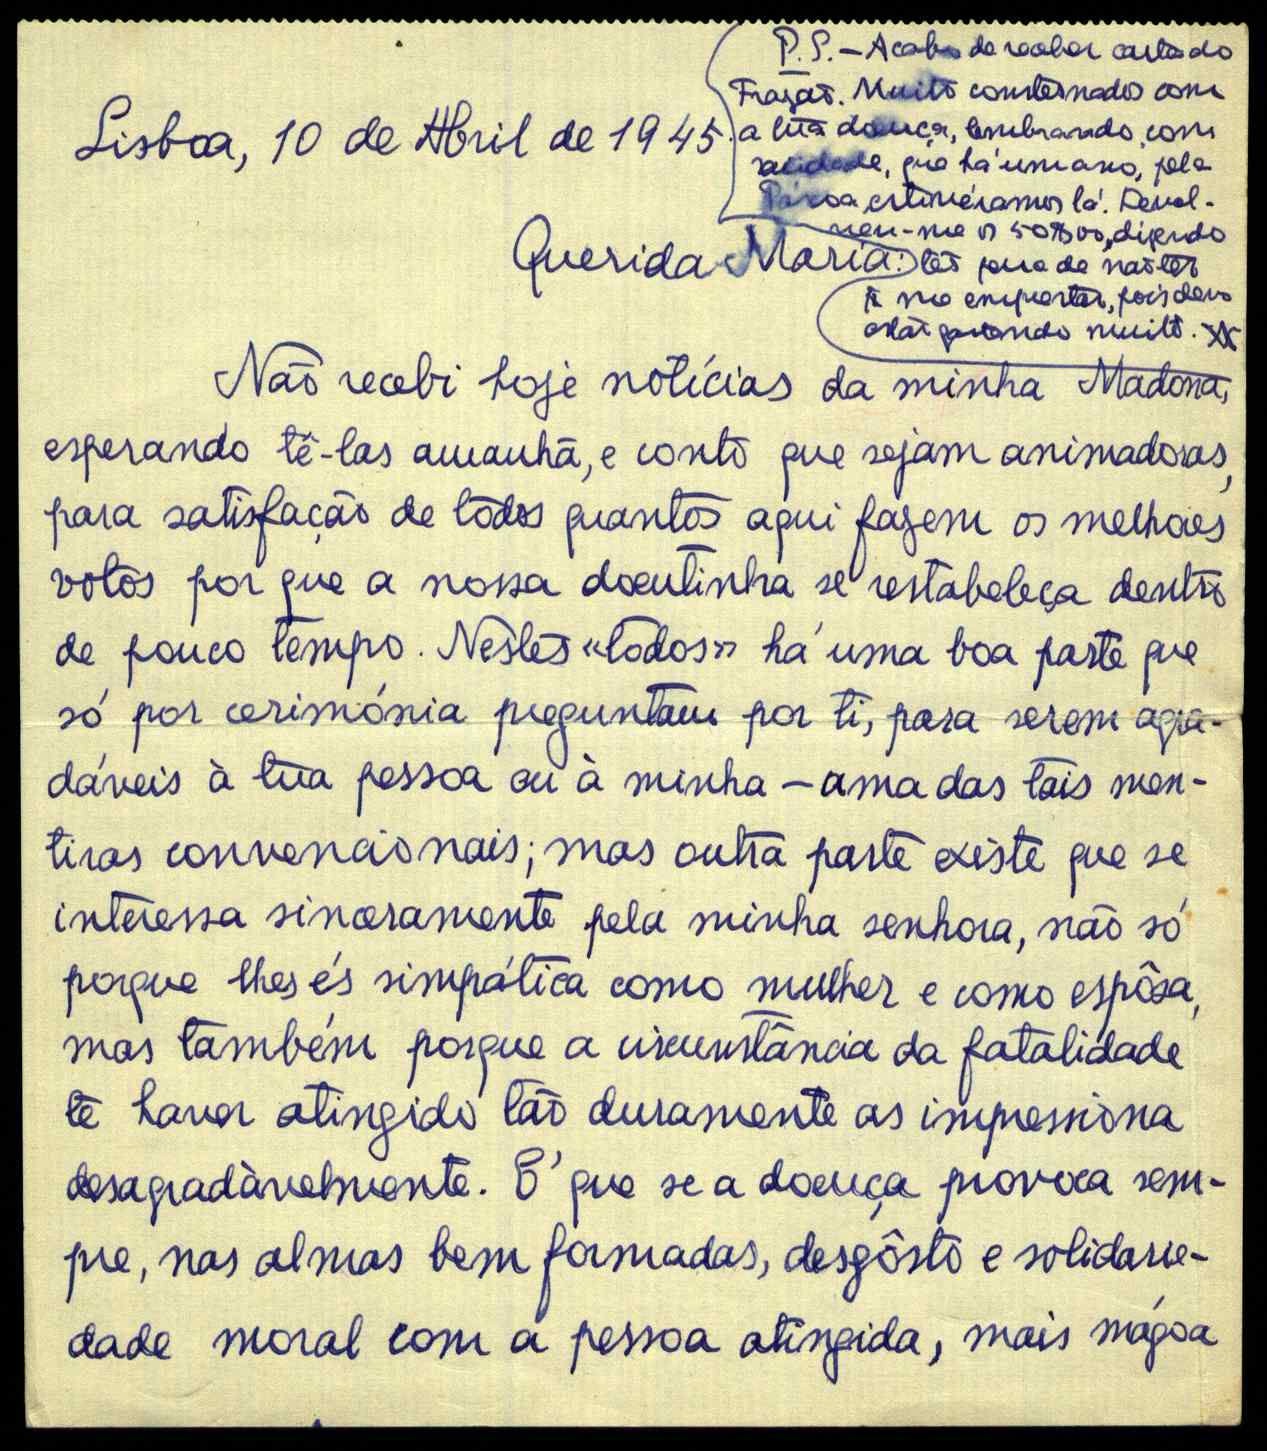 P.S. — Acabo de receber carta do
Frazão. Muito consternados com
a tua doença, lembrando, com
saudade, que há um ano, pela
Páscoa, estivéramos lá. Devol-
veu-me os 50$00, dizendo
ter pena de não ter
me emprestar, pois devo
estar gastando muito.
Lisboa, 10 de Abril de 1945.
Querida Maria:
Não recebi hoje notícias da minha Madona,
esperando tê-las amanhã, e conto que sejam animadoras,
para satisfação de todos quantos aqui fazem os melhores
votos por que a nossa doentinha se restabeleça dentro
de pouco tempo. Nestes «todos» há uma boa parte que
só por cerimónia preguntam por ti, para serem agra-
dáveis à tua pessoa ou à minha — uma das tais men-
tiras convencionais; mas outra parte existe que se
interessa sinceramente pela minha senhora, não só
porque lhes és simpática como mulher e como espôsa,
mas também porque a circunstância da fatalidade
te haver atingido tão duramente as impressiona
desagradàvelmente. É que se a doença provoca sem-
pre, nas almas bem formadas, desgôsto e solidarie-
dade moral com a pessoa atingida, mais mágoa